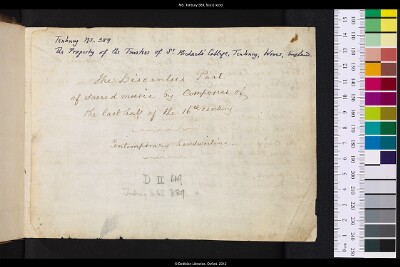 MS. Tenbury 389, fol. ii recto
Tenbury MS. 389
The Property of the Trustees of St Michael's College, Tenbury, Worcs, England.
The Discantus Part
of Sacred music by Composers of
the last half of the 16th century
Contemporary handwriting
D II
389
© Bodleian Libraries, Oxford 2012